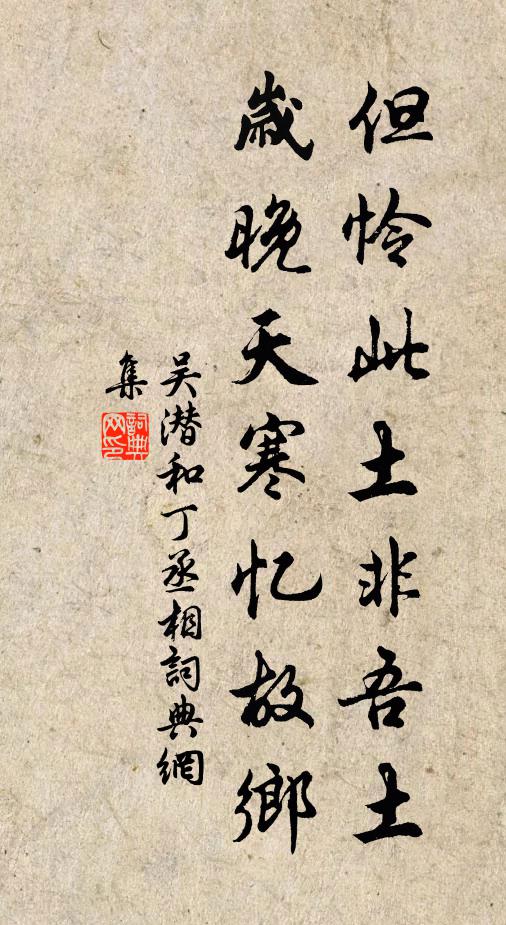 但怜此土非吾土
歲晚天寒忆故鄉
吴潜和丁丞相詞典網
集
詞典
网印